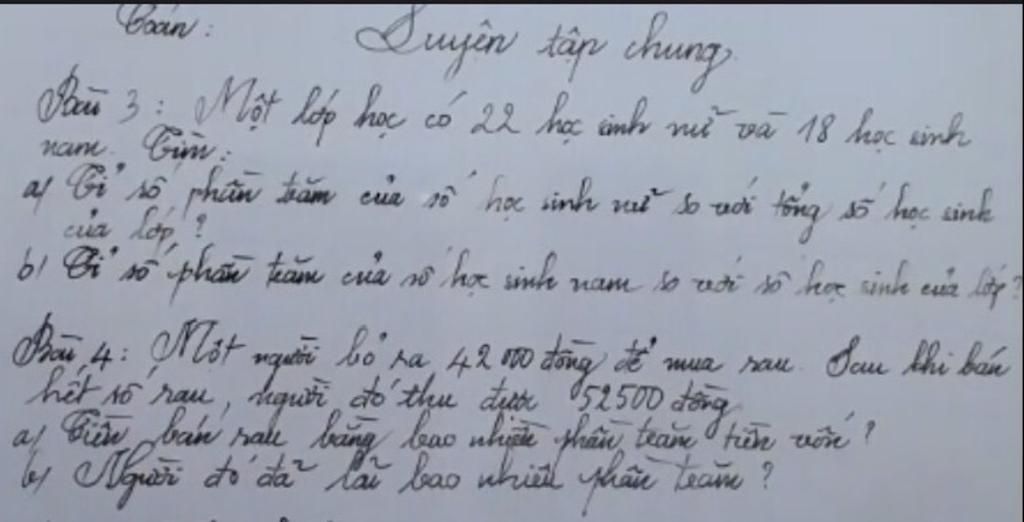 Toán:
Luyện tập chung
Bài 3: Một lớp học có 22 học sinh nữ và 18 học sinh
nam. Tìm:
a) Tỉ số phần trăm của số học sinh nữ so với tổng số học sinh
của lớp?
b) Tỉ số phần trăm của số học sinh nam so với số học sinh của lớp?
Bài 4: Một người bỏ ra 42000 đồng để mua rau. Sau khi bán
hết số rau, người đó thu được 52500 đồng
a) Tiền bán rau bằng bao nhiêu phần trăm tiền vốn?
b) Người đó đã lãi bao nhiêu phần trăm?